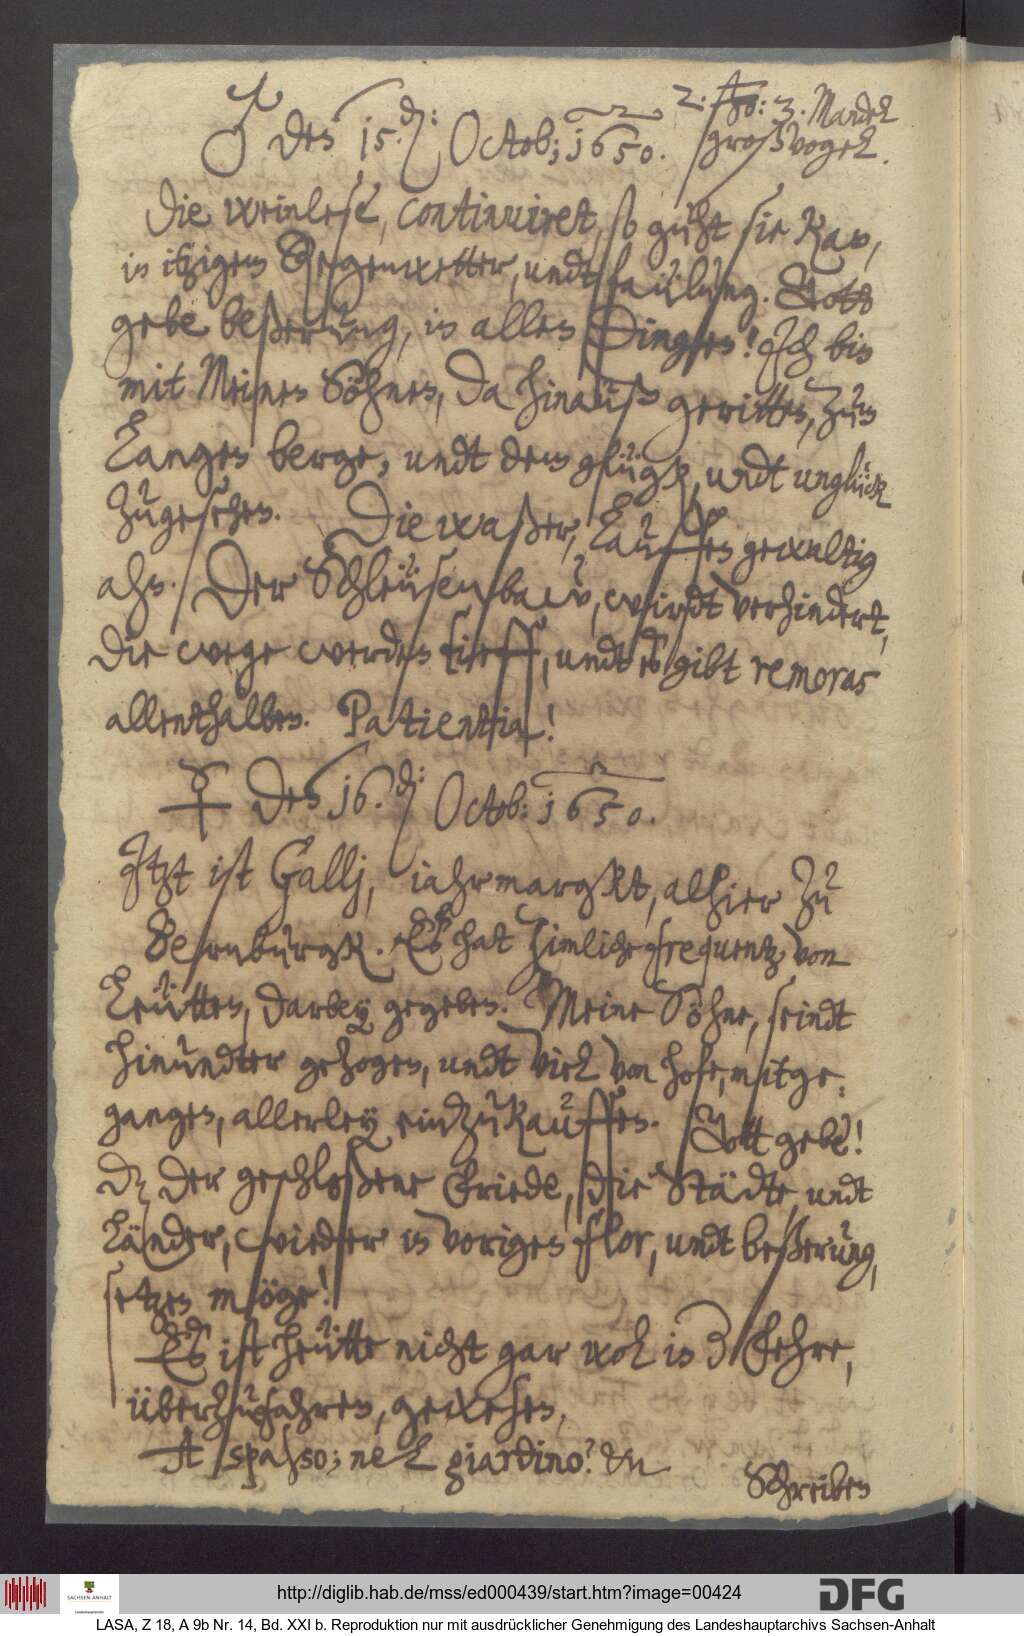 ♂ den 15.den: Octob: 1650. 2: 3. Mandel
großvogel.
Die weinlese, continuiret, so guht sie kan,
in itzigem Regenwetter, undt faülung. Gott
gebe beßerung, in allen Dingen! Ich bin
mit Meinen Söhnen, da hinauß geritten, zum
Langen berge, undt dem glügk, undt unglück
zugesehen. Die waßer, Lauffen gewaltig
ahn. Der Schleüsenbaw, wirdt verhindert,
die wege werden tieff, undt es gibt remoras
allenthalben. Patientia!
☿ den 16.den: Octob: 1650.
Itzt ist Gallj, iahrmargkt, alhier zu
Bernburgk. Es hat zimliche frequentz, von
Leütten, darbey gegeben. Meine Söhne, seindt
hinundter gezogen, undt viel von hofe, mitge-
gangen, allerley einzukauffen. Gott gebe!
dz der geschloßene Friede, die Städte, undt
Länder, wieder in vorigen flor, undt beßerung,
setzen möge!
Es ist heütte nicht gar wol in der Fehre,
überzufahren, gewesen,
A spasso; nel giardino?
Schreiben
http://diglib.hab.de/mss/ed000439/start.htm?image=00424
SACHSEN-ANHALT
DFG
LASA, Z 18, A 9b Nr. 14, Bd. XXI b. Reproduktion nur mit ausdrücklicher Genehmigung des Landeshauptarchivs Sachsen-Anhalt